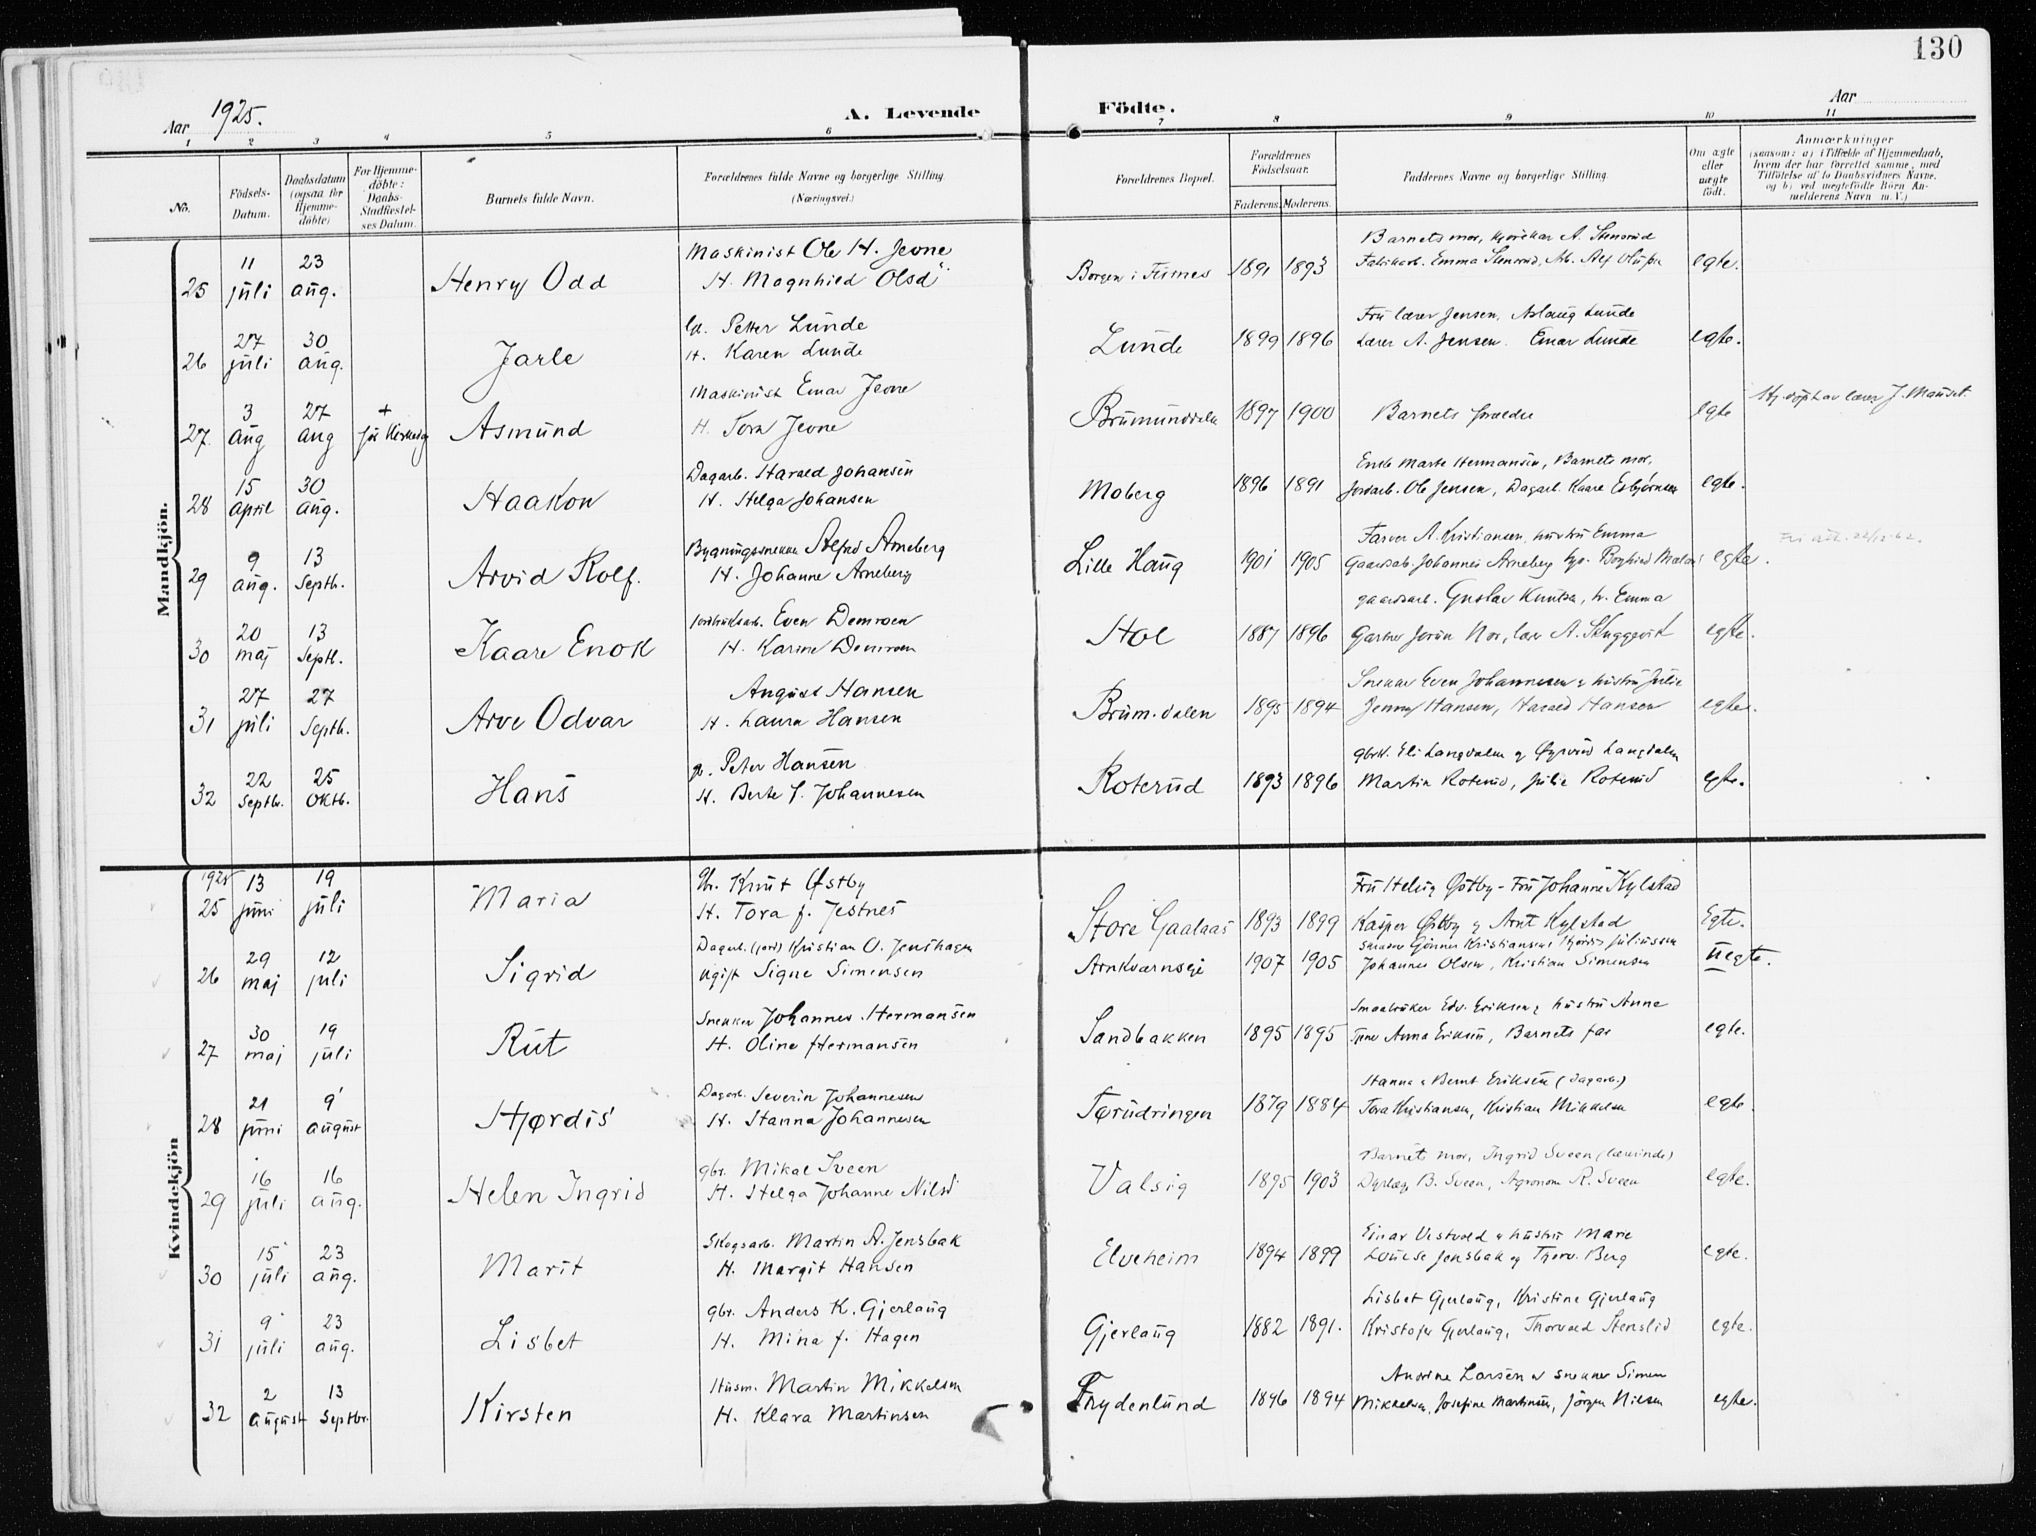 130
Aar 1925.
A. Levende Födte.
Aar
1 2 3 4 5 6 7 8 9 10 11
No.
Födsels-Datum.
Daabsdatum (ogsaa for Hjemme-döbte)
For Hjemme-döbte: Daabs-Stadfæstel-ses Datum.
Barnets fulde Navn.
Forældrenes fulde Navne og borgerlige Stilling. (Næringsvei.)
Forældrenes Bopæl.
Forældrenes Födselsaar.
Faderens. Moderens.
Faddernes Navne og borgerlige Stilling.
Om ægte eller uægte födt.
Anmærkninger
(saasom: a) i Tilfælde af Hjemmedaab, hvem der har forrettet samme, med Tilföielse af to Daabsvidners Navne, og b) ved uegtefödte Börn An-melderens Navn m. V.)
Mandkjön.
25 11 juli 23 aug. Henry Odd
Maskinist Ole H. Jevne
H. Magnhild Olsd.
Borgen i Furnes 1891 1893
Barnets mor, A. Stensrud
Fabrikarb. Emma Stensrud, Alf
egte.
26 27 juli 30 aug. Jarle
Petter Lunde
H. Karen Lunde
Lunde 1899 1896
Fru lærer Jensen, Aslaug Lunde
Lærer A. Jensen. Einar Lunde
egte.
27. 3 aug 27 aug + Asmund
Maskinist Einar Jevne
H. Tora Jevne
Brumunddalen 1897 1900
Barnets forældre
egte
Hj. døpt av lærer J.
28 15 april 30 aug. Haakon
Dagarb. Harald Johansen
H. Helga Johansen
Moberg 1896 1891
Enke Marte Hermansen, Barnets mor,
Jordarb. Ole Jensen, Dagarb. Kaare Esbjørnsen
egte.
29 9 aug. 13 Septb. Arvid Rolf.
Bygningssnekker Alfred Arneberg
H. Johanne Arneberg
Lille Haug 1901 1905
Farver A. Kristiansen, hustru Emma
Gaardsarb. Johannes Arneberg
egte.
30 20 maj 13 Septb. Kaare Enok
Even Demroen
H. Karine Demroen
Hol 1887 1896
gaardsarb. Gustav Knutsen, h. Emma
Gartner Nor, lærer A.
egte.
31 27 juli 27 Septb. Arve Odvar
August Hansen
H. Laura Hansen
Brum.dalen 1895 1894
Snekker Even Johannesen & hustru Julie
Jenny Hansen, Harald Hansen
egte.
32 22 Septb. 25 Oktb. Hans
Peter Hansen
H. Berte J. Johannesen
Roterud 1893 1896
Eli Langdalen og Øyvind Langdalen
Martin Roterud, Julie Roterud
egte.
Kvindekjön
1925
25 13 juni 19 juli Maria
Knut Østby
H. Tora f. Jestnes
Store Gaalaas 1893 1899
Fru Helug Østby - Fru Johanne Kylstad
Kasper Østby og Arnt Kylstad
Egte.
26 29 maj 12 juli Sigrid
Dagarb. (jord) Kristian O. Jenshagen
ugift Signe Simensen
Arnkværnseie 1907 1905
Gunner Kristiansen, Hjørdis Juliussen
Johannes Olsen, Kristian Simensen
uegte.
27 30 maj 19 juli Rut
Snekker Johannes Hermansen
H. Oline Hermansen
Sandbakken 1895 1895
Smaabruker Edv. Eriksen & hustru Anne
Anna Eriksen, Barnets far
egte.
28 21 juni 9 august Hjørdis
Dagarb. Severin Johannesen
H. Hanna Johannesen
Tørudringen 1879 1884
Hanna & Bernt Eriksen (dagarb.)
Tora Kristiansen, Kristian Mikkelsen
egte.
29 16 juli 16 aug. Helen Ingrid
gbr. Mikal Sveen
H. Helga Johanne Nilsd
Valsig 1895 1903
Barnets mor, Ingrid Sveen (lærerinde)
Dyrlæge B. Sveen, Agronom R. Sveen
egte.
30 15 juli 23 aug. Marit
Skogsarb. Martin A. Jensbak
H. Margit Hansen
Elveheim 1894 1899
Einar Vestvold & hustru Marie
Lovise Jensbak og Thorv. Berg
egte.
31 9 juli 23 aug. Lisbet
gbr. Anders K. Gjerlaug
H. Mina f. Hagen
Gjerlaug 1882 1891.
Lisbet Gjerlaug, Kristine Gjerlaug
Kristofer Gjerlaug, Thorvald Stenslid
egte.
32 2 august 13 Septbr. Kirsten
Husm. Martin Mikkelsen
H. Klara Martinsen
Frydenlund 1896 1894
Andrine Larsen & snekker Simen
Mikkelsen, Josefine Martinsen, Jörgen Nilsen
egte.